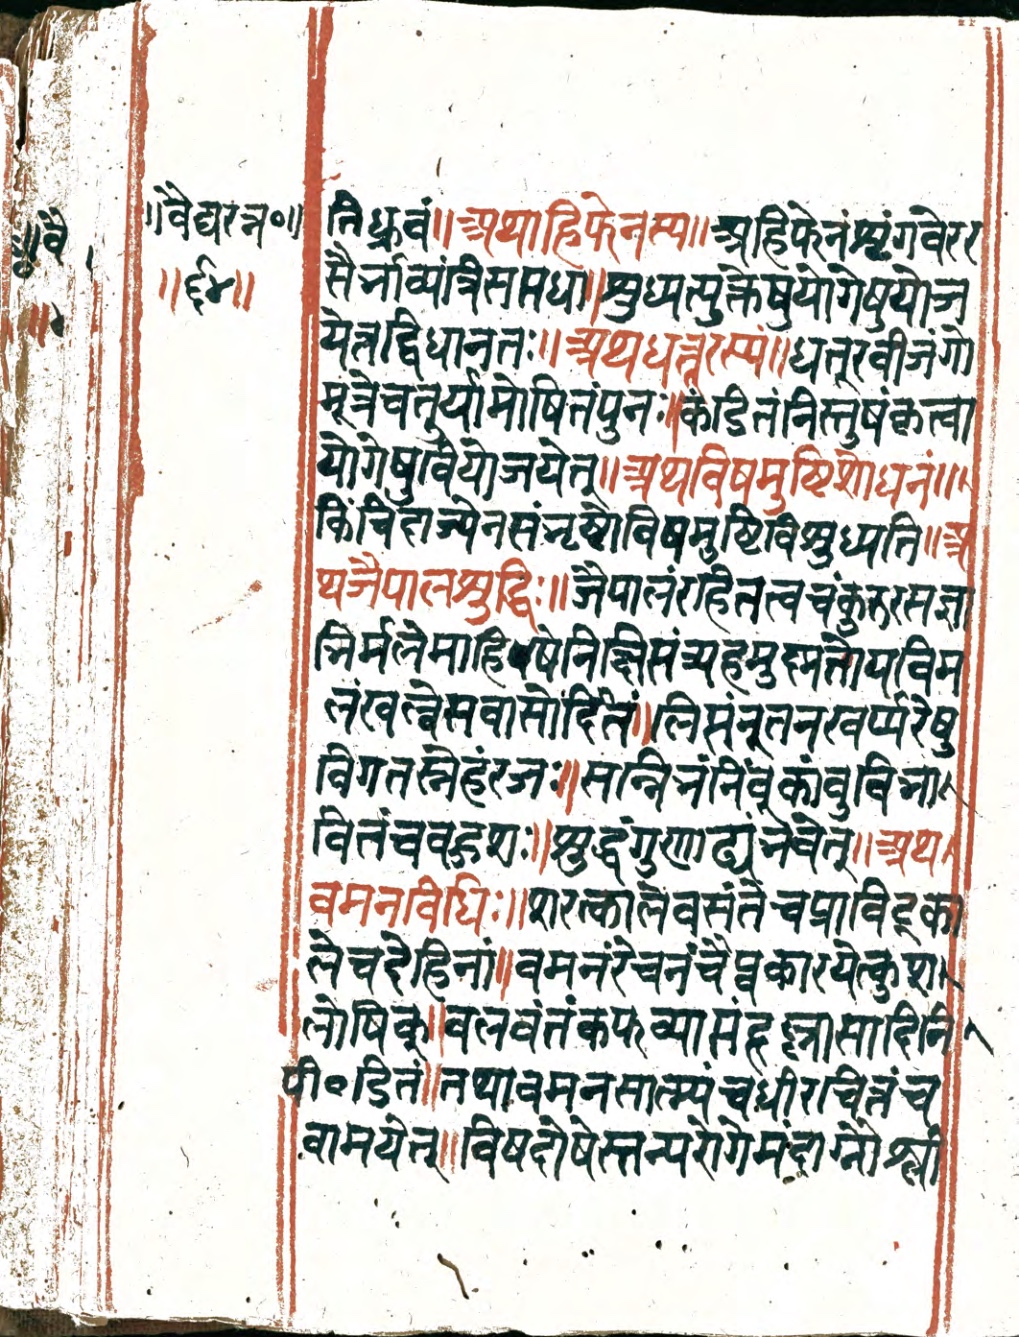 ॥वैद्यरत्न॰॥
॥६४॥
तिध्रुवं॥अथाहिफेनस्य॥अहिफेनंशृंगवेरर
सैर्भाव्यंत्रिसप्तधा॥शुध्यत्युक्तेषुयोगेषुयोज
येत्तद्विधानतः॥अथधत्तूरस्यं॥धतूरवीजंगो
मूत्रेचतूर्यामोषितंपुनः॥कंडितंनिस्तुषंकृत्वा
योगेषुवैयोजयेत्॥अथविषमुष्टिशोधनं॥
किंचिदाज्येनसंभृष्टोविषमुष्टिविशुध्यति॥अ
थजैपालशुद्धिः॥जैपालंरहितत्वचंकुरुरसज्ञा
भिर्मलेमाहिषेनिक्षिप्तंत्र्यहमुस्मतोयविम
लंखल्वेसवासोर्दितं॥लिप्तंनूतनखर्प्परेषु
विगतस्नेहंरजः॥सन्निभंनिंवूकांवुविभा
वितंचवहुशः॥शुद्धंगुणाढ्यंभवेत्॥अथ
वमनविधिः॥शरत्कालेवसंतेचप्राविट्का
लेचदेहिनां॥वमनंरेचनंचैवकारयेत्कुश
लोभिषक्॥वलवंतंकफव्याप्तंहृल्लासादिनि
पी॰डितं॥तथावमनसात्म्यंचधीरचित्तंच
वामयेत्॥विषदोषेस्तन्यरोगेमंदाग्नौश्ली